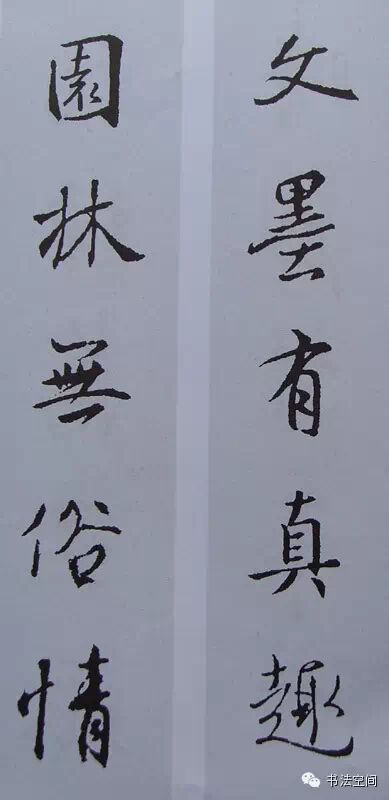 文墨有真趣
園林無俗情
书法空间